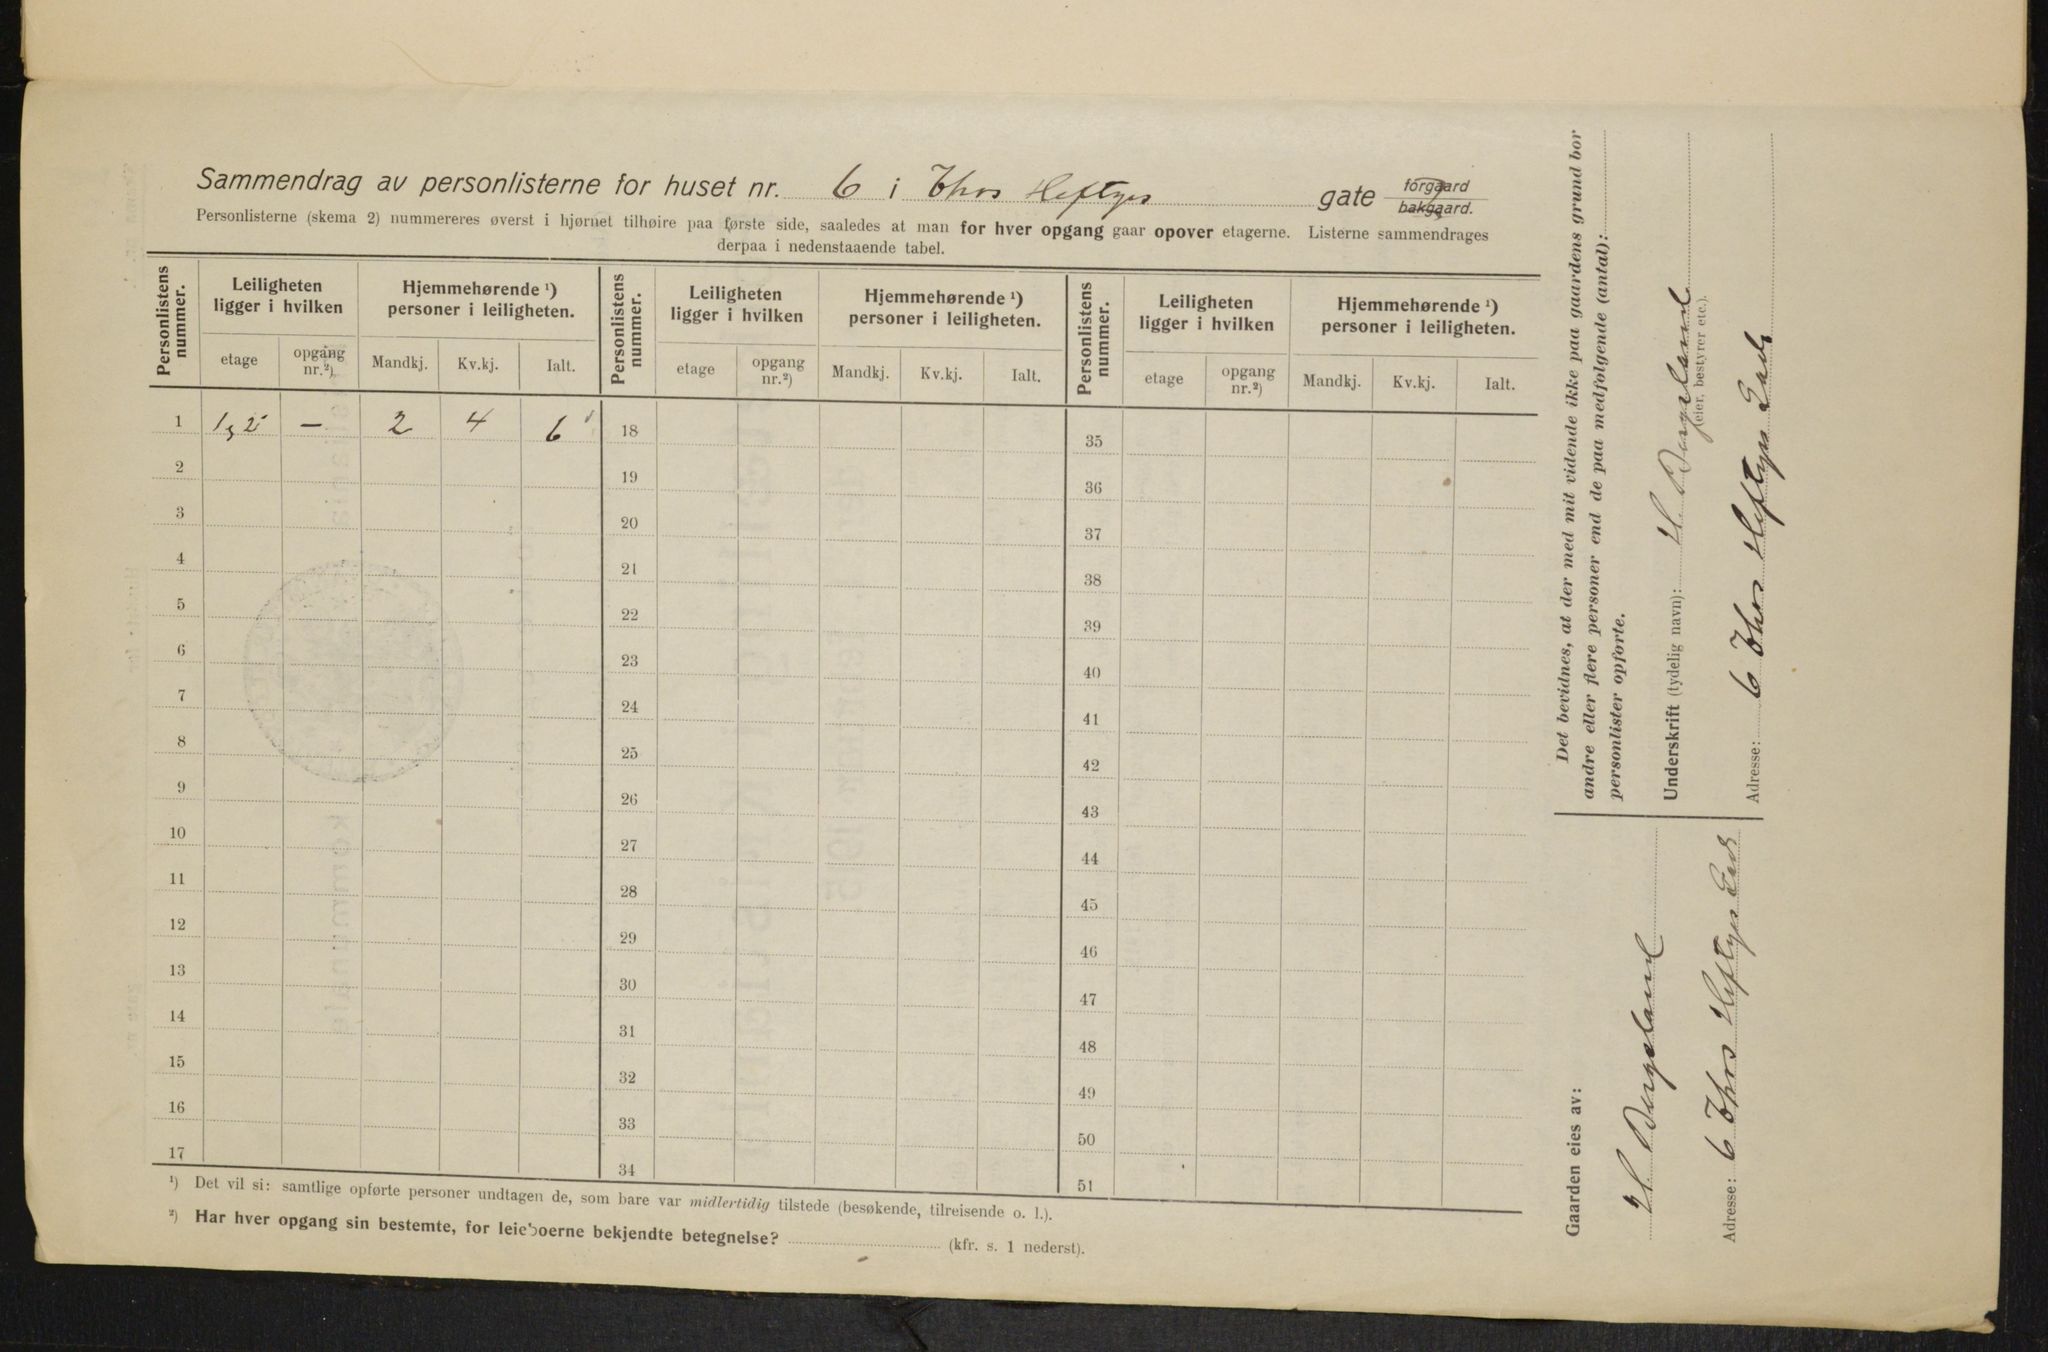 Sammendrag av personlisterne for huset nr. 6 i Thos Heftyes gate forgaard bakgaard.
Personlisterne (skema 2) nummereres øverst i hjørnet tilhøire paa første side, saaledes at man for hver opgang gaar opover etagerne. Listerne sammendrages
derpaa i nedenstaaende tabel.
Personlistens nummer. Leiligheten ligger i hvilken Hjemmehørende ¹) personer i leiligheten. Personlistens nummer. Leiligheten ligger i hvilken Hjemmehørende ¹) personer i leiligheten. Personlistens nummer. Leiligheten ligger i hvilken Hjemmehørende ¹) personer i leiligheten.
etage opgang nr.²) Mandkj. Kv.kj. Ialt. etage opgang nr.²) Mandkj. Kv.kj. Ialt. etage opgang nr.²) Mandkj. Kv.kj. Ialt.
1 1, 2 — 2 4 6 18 35
2 19 36
3 20 37
4 21 38
5 22 39
6 23 40
7 24 41
8 25 42
9 26 43
10 27 44
11 28 45
12 29 46
13 30 47
14 31 48
15 32 49
16 33 50
17 34 51
¹) Det vil si: samtlige opførte personer undtagen de, som bare var midlertidig tilstede (besøkende, tilreisende o. l.).
²) Har hver opgang sin bestemte, for leieboerne bekjendte betegnelse? (kfr. s. 1 nederst).
Det bevidnes, at der med mit vidende ikke paa gaardens grund bor
andre eller flere personer end de paa medfølgende (antal):
personlister opførte.
Underskrift (tydelig navn): H. Bergland
(eier, bestyrer etc.).
Adresse: 6 Thos Heftyes Gade
Gaarden eies av:
H. Bergland
Adresse: 6 Thos Heftyes Gade